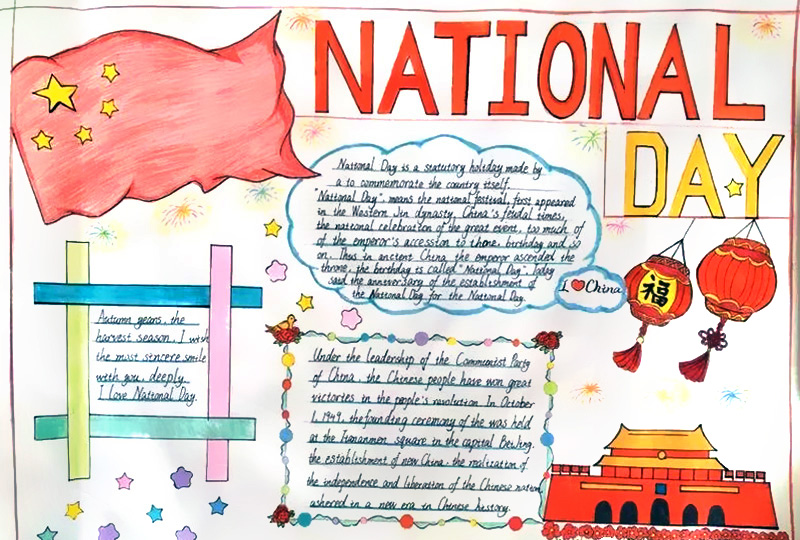 NATIONAL
DAY
National Day is a statutory holiday made by
a to commemorate the country itself.
"National Day", means the national festival, first appeared
in the Western Jin dynasty. China's feudal times,
the national celebration of the great event, too much of
of the emperor's accession to thone, birthday and so
on. Thus in anctent China, the emperor ascended the
throne, the birthday is called "National Day". Today
said the anniversary of the establishment of
the National Day for the National Day.
I ❤ China
福
Autumn gears, the
harvest season, I wish
the most sincere smile
with you, deeply.
I love National Day.
Under the leadership of the Communist Party
of China, the Chinese people have won great
victories in the people's revolution. In October
1, 1949, the founding ceremony of the was held
at the Tiananmen square in the capital BeiJing.
the establishment of new China. the realization of
the independence and liberation of the Chinese nation
ushered in a new era in Chinese history.